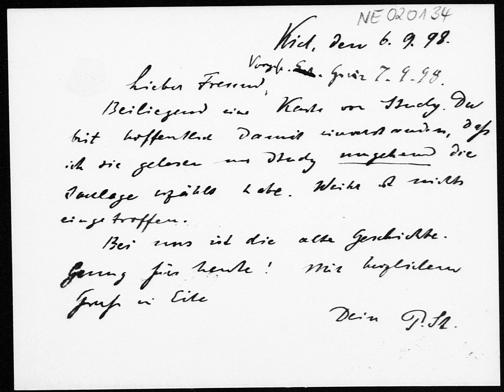 NE 020134
Kiel, den 6.9.98.
7.9.98.
Lieber Freund,
Beiliegend eine Karte von Study. Du
bist hoffentlich damit einverstanden, daß
ich sie gelesen und Study umgehend die
erzählt habe. Weiter ist nichts
eingetroffen.
Bei uns ist die alte Geschichte.
Genug für heute! Mit herzlichem
Gruß in Eile
Dein P. St.